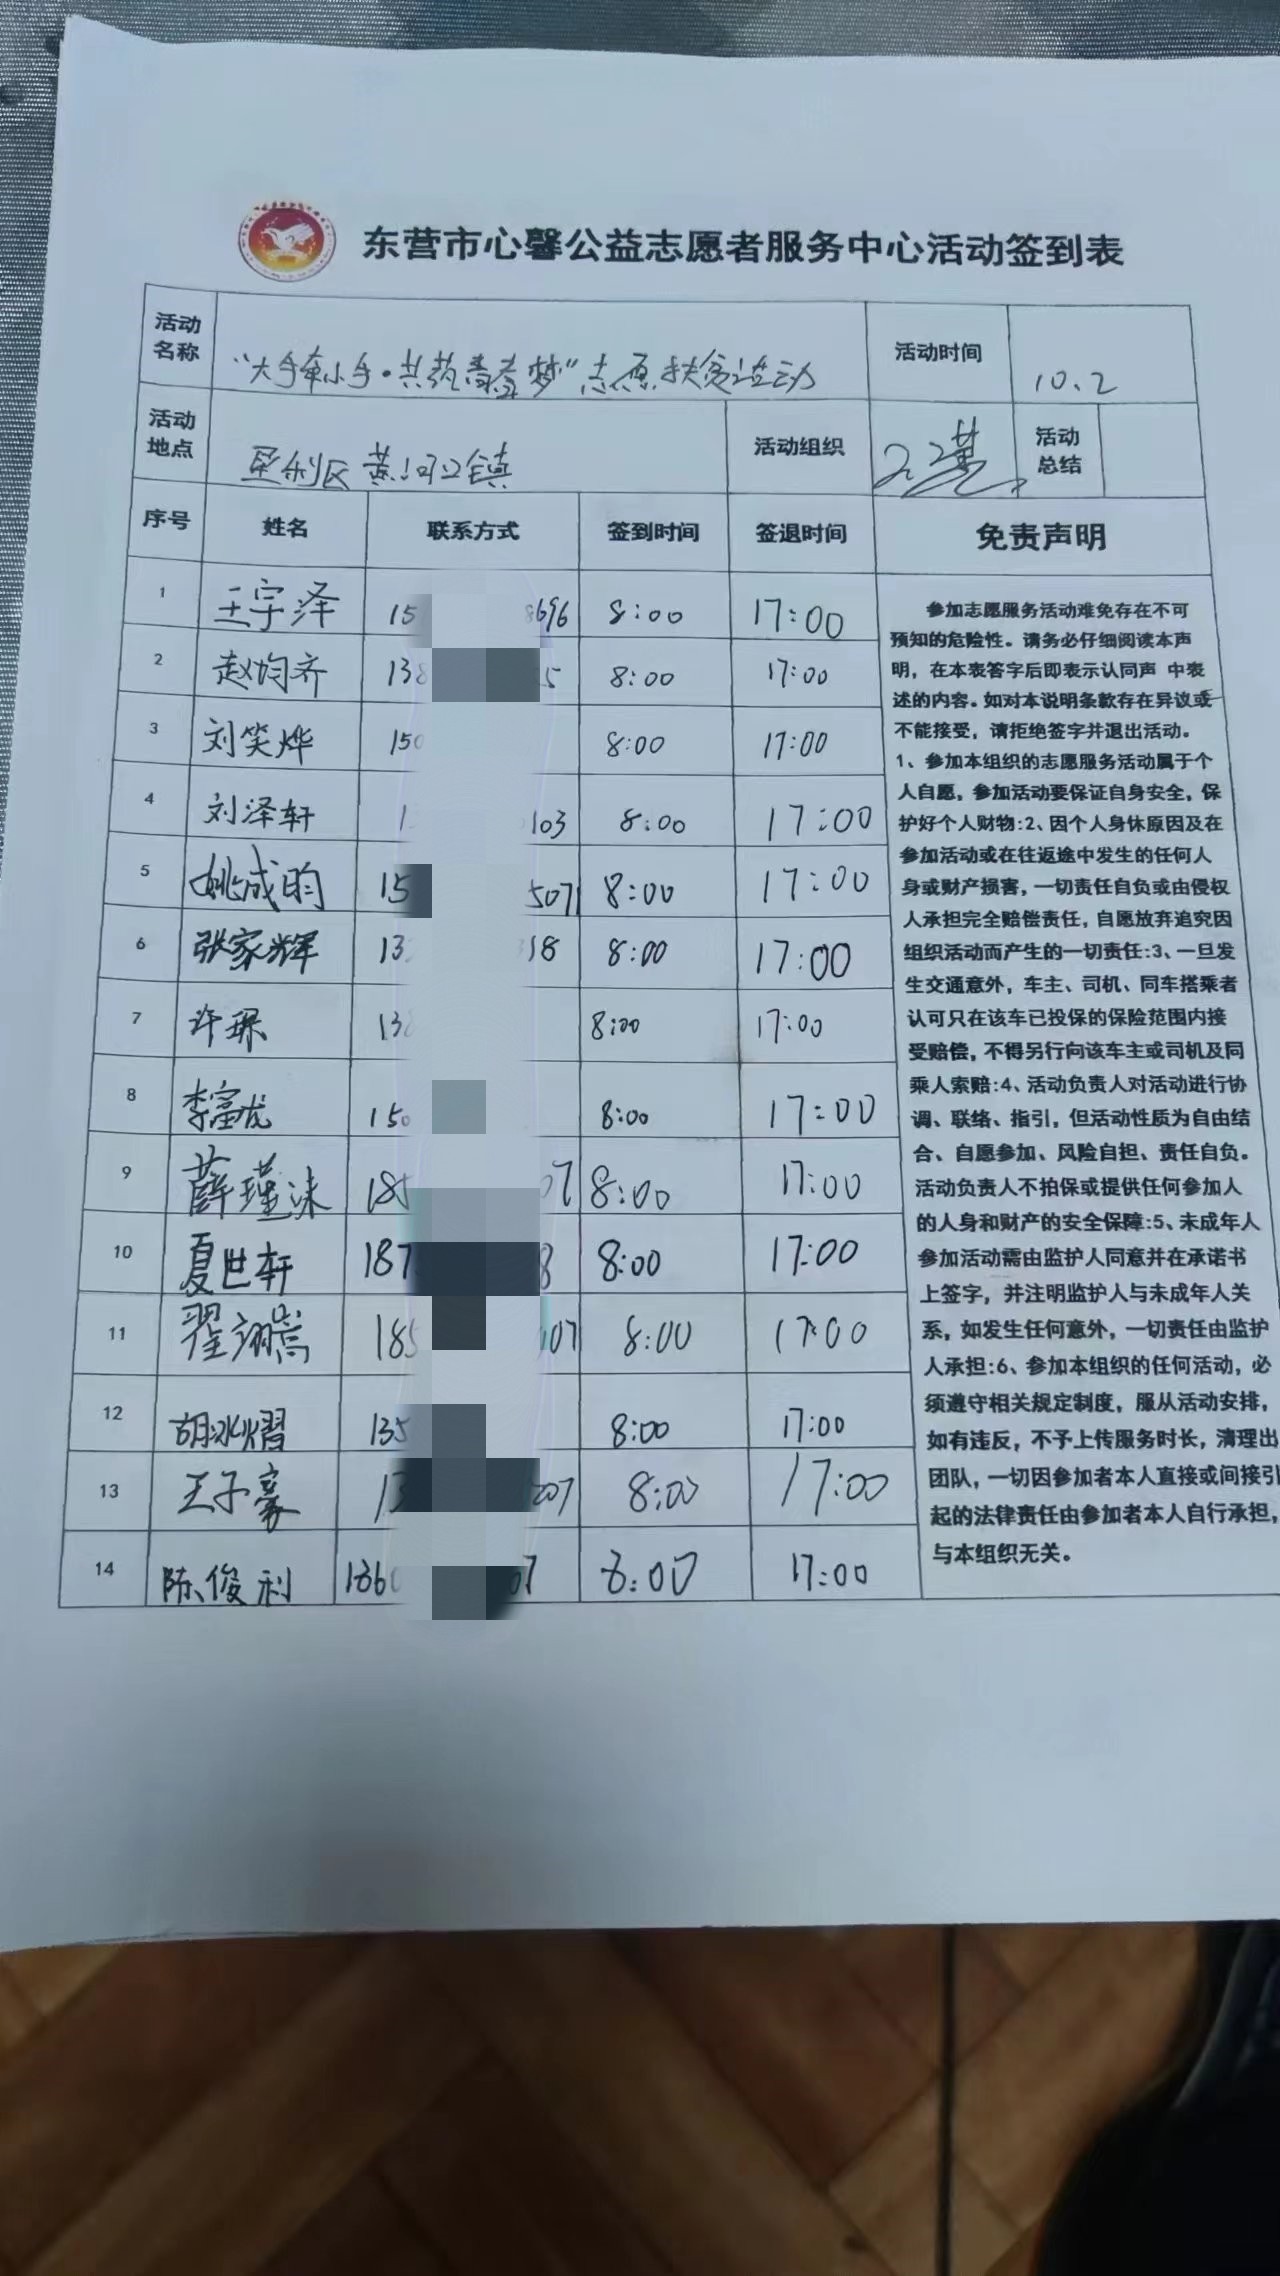 东营市心馨公益志愿者服务中心活动签到表
活动名称 “大手牵小手·共筑青春梦”志愿扶贫活动 活动时间 10.2
活动地点 垦利区黄河口镇 活动组织 活动总结
序号 姓名 联系方式 签到时间 签退时间 免责声明
1 王宇泽 15 8696 8:00 17:00
2 赵均齐 138 5 8:00 17:00
3 刘笑烨 150 8:00 17:00
4 刘泽轩 1 103 8:00 17:00
5 姚成昀 15 5071 8:00 17:00
6 张家辉 13 318 8:00 17:00
7 许琛 138 8:00 17:00
8 李富龙 150 8:00 17:00
9 薛瑾沫 185 07 8:00 17:00
10 夏世轩 187 8 8:00 17:00
11 翟翊嵩 185 107 8:00 17:00
12 胡冰熠 135 8:00 17:00
13 王子豪 13 207 8:00 17:00
14 陈俊利 1860 07 8:00 17:00
参加志愿服务活动难免存在不可
预知的危险性。请务必仔细阅读本声
明，在本表答字后即表示认同声 中表
述的内容。如对本说明条款存在异议或
不能接受，请拒绝签字并退出活动。
1、参加本组织的志愿服务活动属于个
人自愿，参加活动要保证自身安全，保
护好个人财物:2、因个人身休原因及在
参加活动或在往返途中发生的任何人
身或财产损害，一切责任自负或由侵权
人承担完全赔偿责任，自愿放弃追究因
组织活动而产生的一切责任:3、一旦发
生交通意外，车主、司机、同车搭乘者
认可只在该车已投保的保险范围内接
受赔偿，不得另行向该车主或司机及同
乘人索赔:4、活动负责人对活动进行协
调、联络、指引，但活动性质为自由结
合、自愿参加、风险自担、责任自负。
活动负责人不拍保或提供任何参加人
的人身和财产的安全保障:5、未成年人
参加活动需由监护人同意并在承诺书
上签字，并注明监护人与未成年人关
系，如发生任何意外，一切责任由监护
人承担:6、参加本组织的任何活动，必
须遵守相关规定制度，服从活动安排，
如有违反，不予上传服务时长，清理出
团队，一切因参加者本人直接或间接引
起的法律责任由参加者本人自行承担，
与本组织无关。